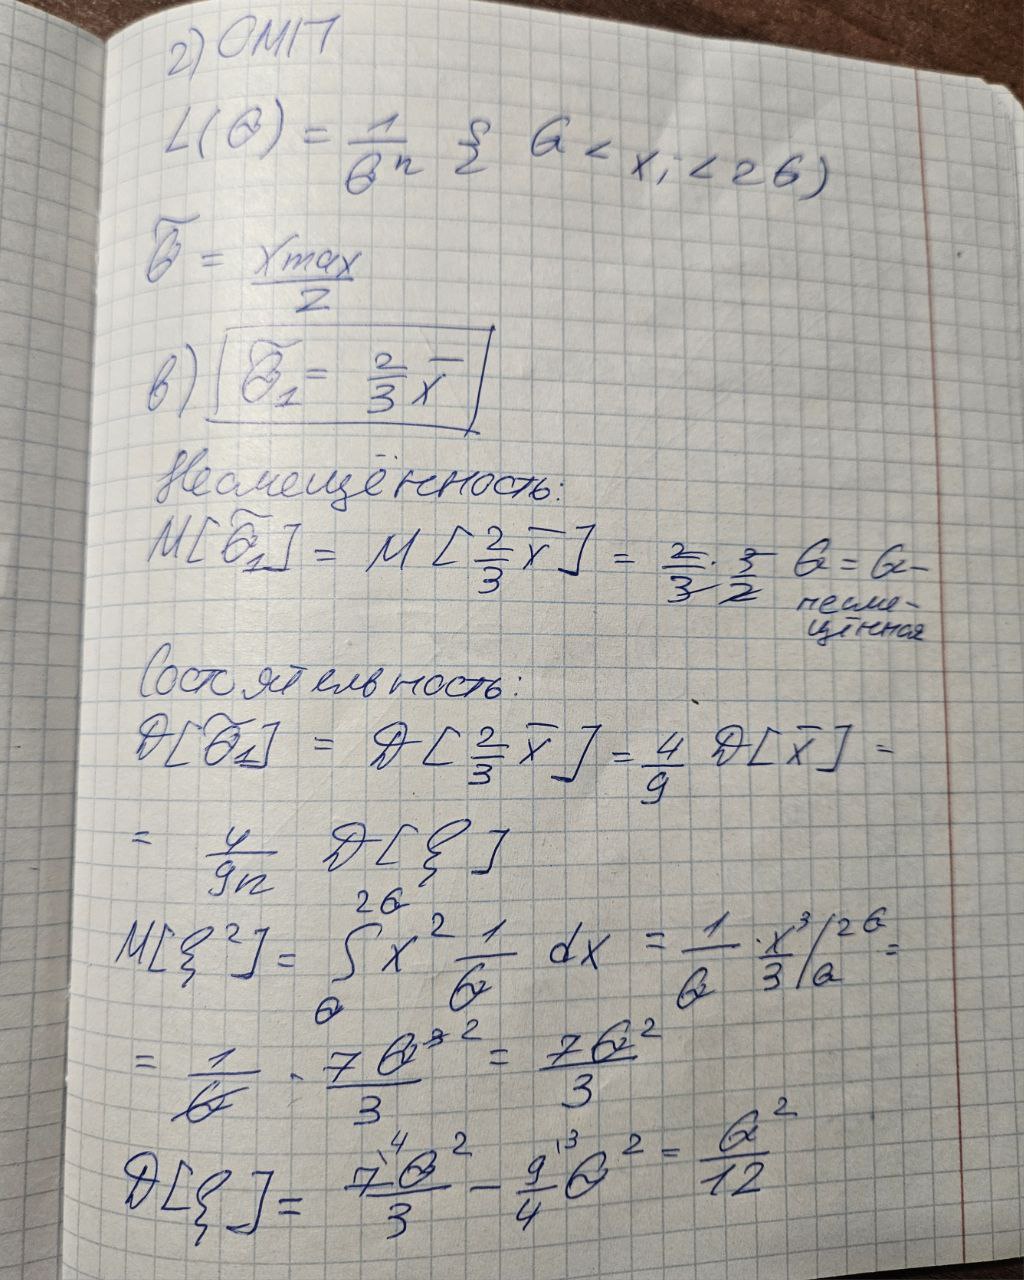 2) ОМП
L(θ) = 1/θⁿ { θ < xᵢ < 2θ)
θ̃ = xmax/2
в) θ̃₁ = 2/3 x̄
Несмещённость:
M[θ̃₁] = M[2/3 x̄] = 2/3 · 3/2 θ = θ –
несме-
щённая
Состоятельность:
D[θ̃₁] = D[2/3 x̄] = 4/9 D[x̄] =
= 4/9n D[ξ]
M[ξ²] = ∫_θ^2θ x² 1/θ dx = 1/θ · x³/3 |_θ^2θ =
= 1/θ · 7θ²/3 = 7θ²/3
D[ξ] = 7\4 θ²/3 – 9\3/4 θ² = θ²/12